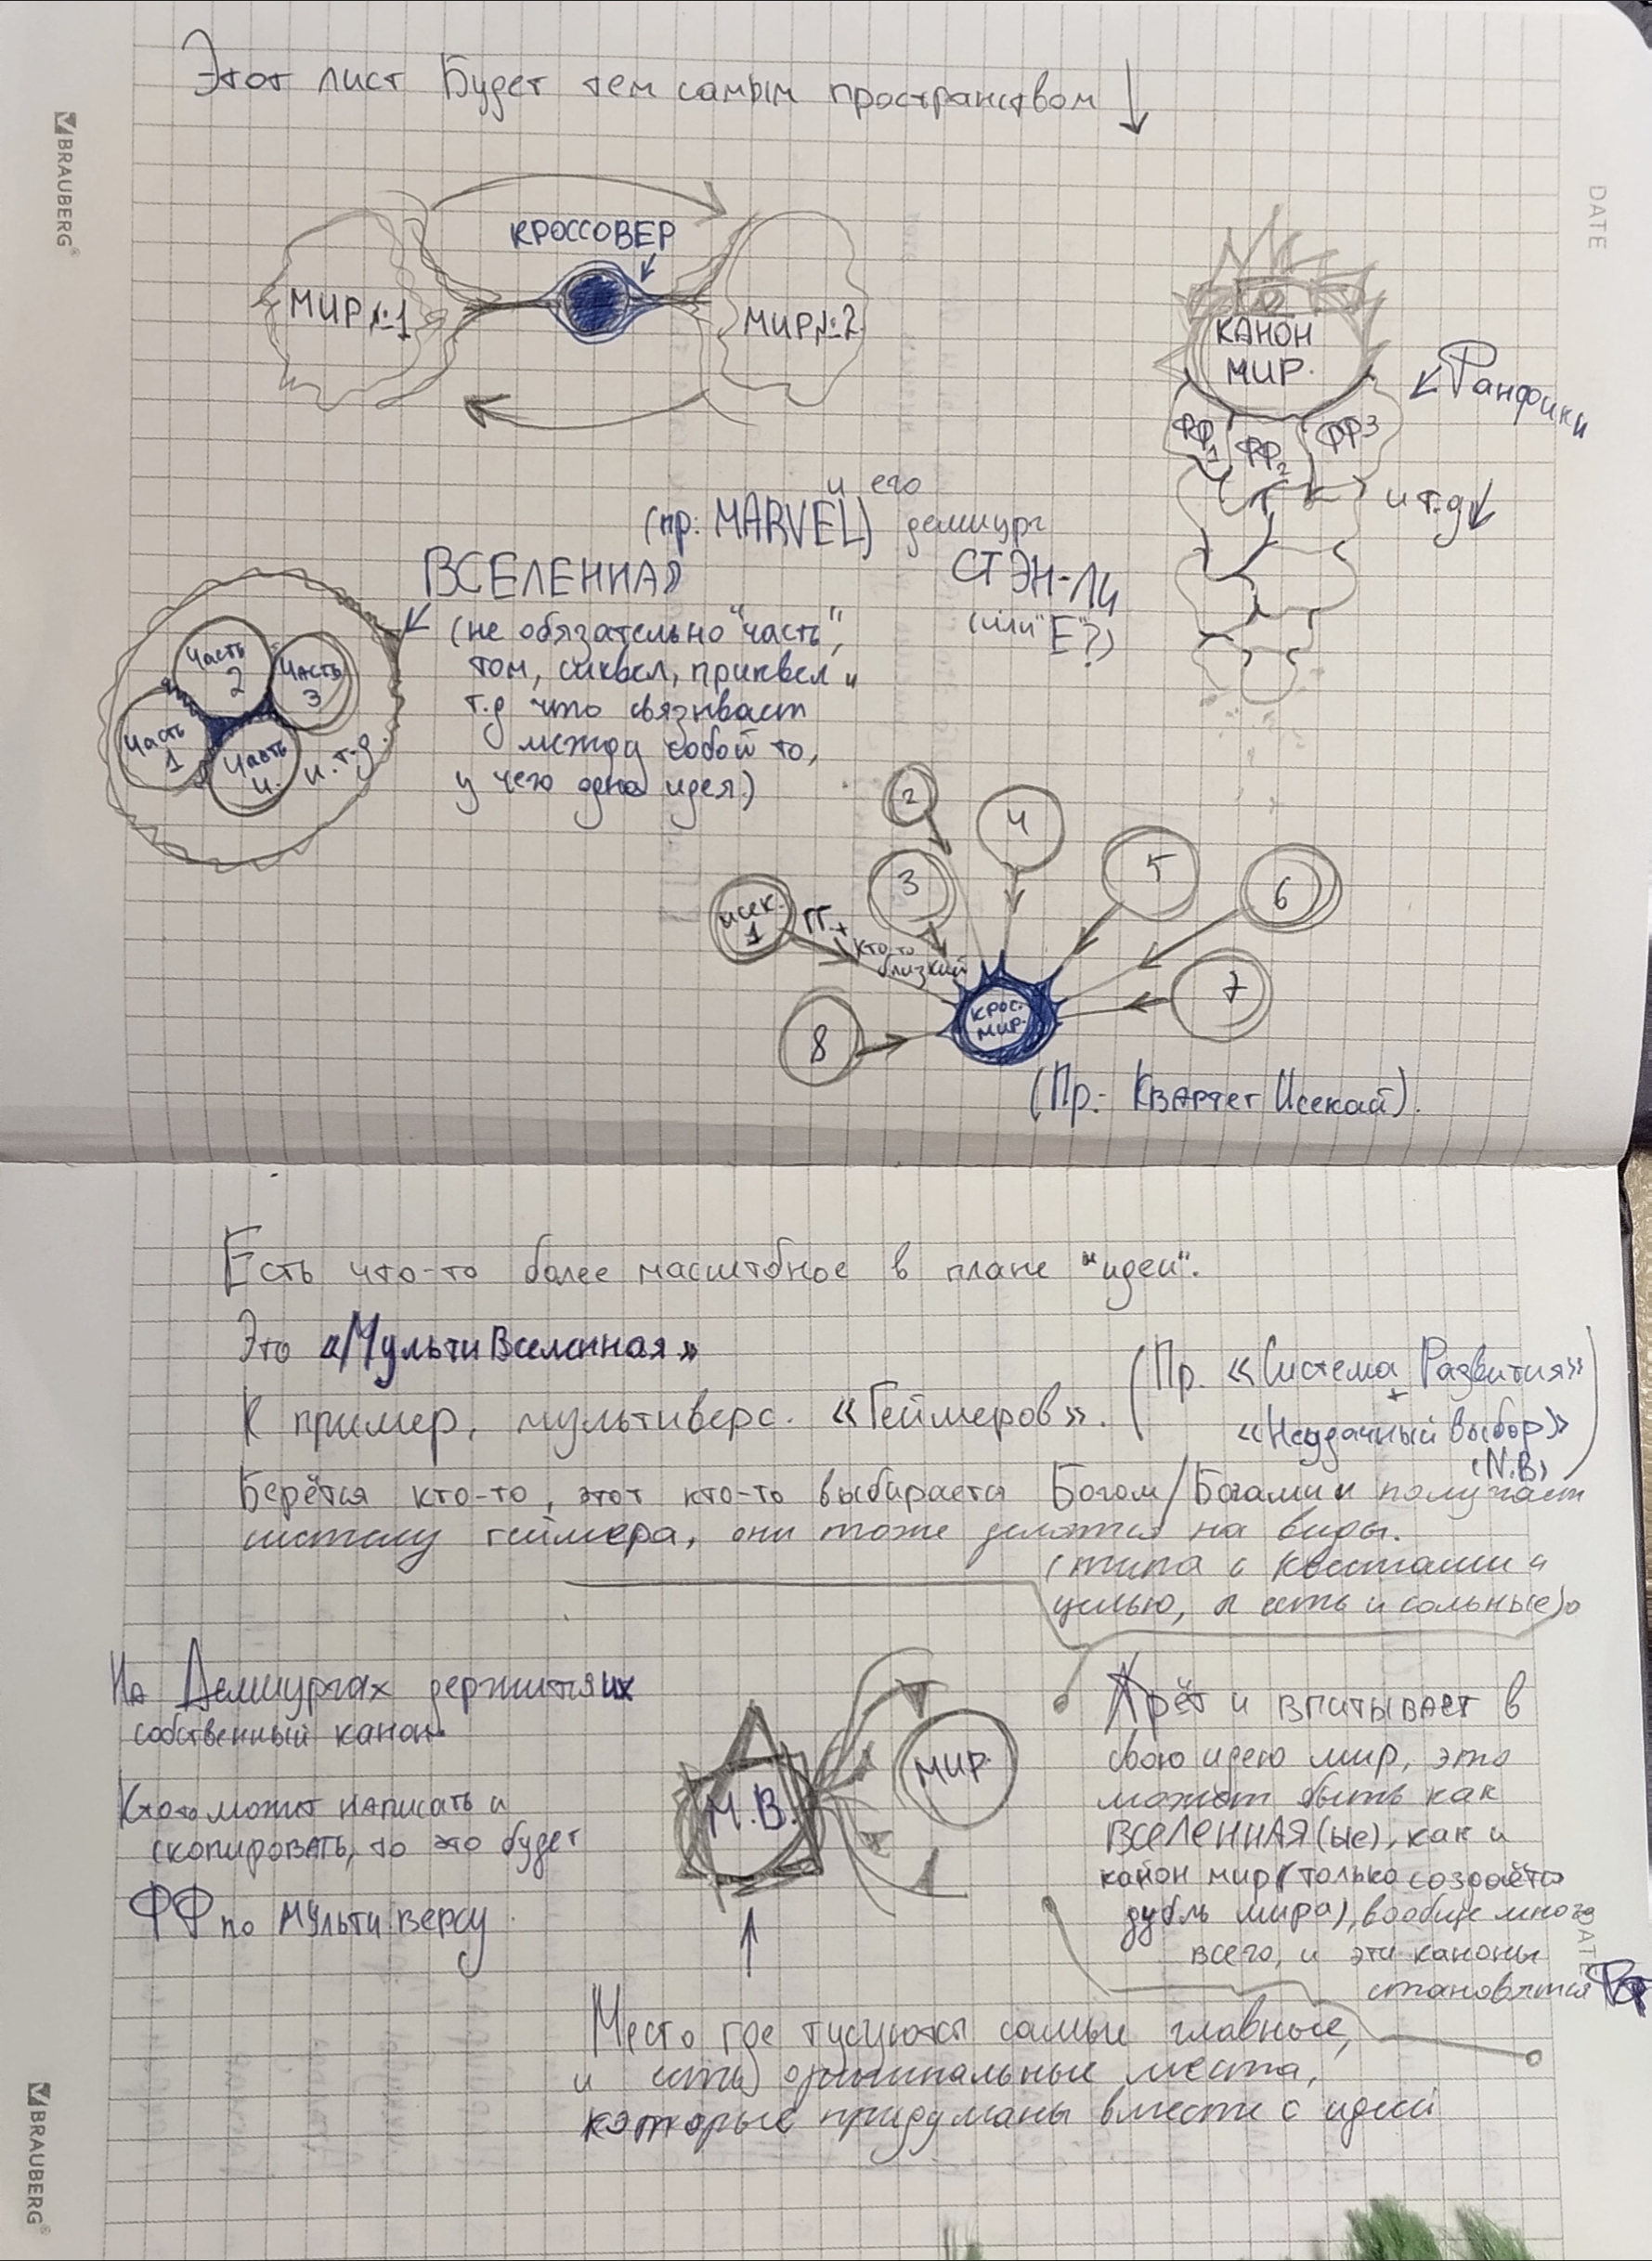 Этот лист Будет тем самым пространством
BRAUBERG
DATE
КРОССОВЕР
МИР №1
МИР №2
КАНОН
МИР.
Фанфики
ФФ1
ФФ2
ФФ3
и т.д
и его
(пр: MARVEL) демиург
СТЭН-ЛИ
(или "Е"?)
ВСЕЛЕННАЯ
(не обязательно "часть",
том, сиквел, приквел и
т.д что связывает
между собой то,
у чего одна идея.)
Часть
2
Часть
3
Часть
1
Часть
4. и.т-д.
2
4
3
5
6
исек.
1
ГГ.+
кто-то
близкий
7
8
крос.
мир.
(Пр:- Квартет Исекай).
Есть что-то более масштобное в плане "идеи".
Это «МультиВселенная»
К пример, мультиверс. «Геймеров». (Пр. «Система Развития»
+
«Неудачный выбор»
(N.B)
Берётся кто-то, этот кто-то выбирается Богом/Богами и получает
систему геймера, они тоже делятся на виды.
(типа с квестами и
целью, а есть и сольные)
На Демиургах держится их
собственный канон.
Кто-то может написать и
скопировать, то это будет
ФФ по мульти версу.
М.В.
МИР.
Жрёт и впитывает в
свою идею мир, это
может быть как
ВСЕЛЕННАЯ(ые), как и
канон мир (только создаётся
дубль мира), вообще много
всего, и эти каноны
становятся ФФ
DATE
Место где тусуются самые главные,
и есть оригинальные места,
которые придуманы вместе с идеей
BRAUBERG